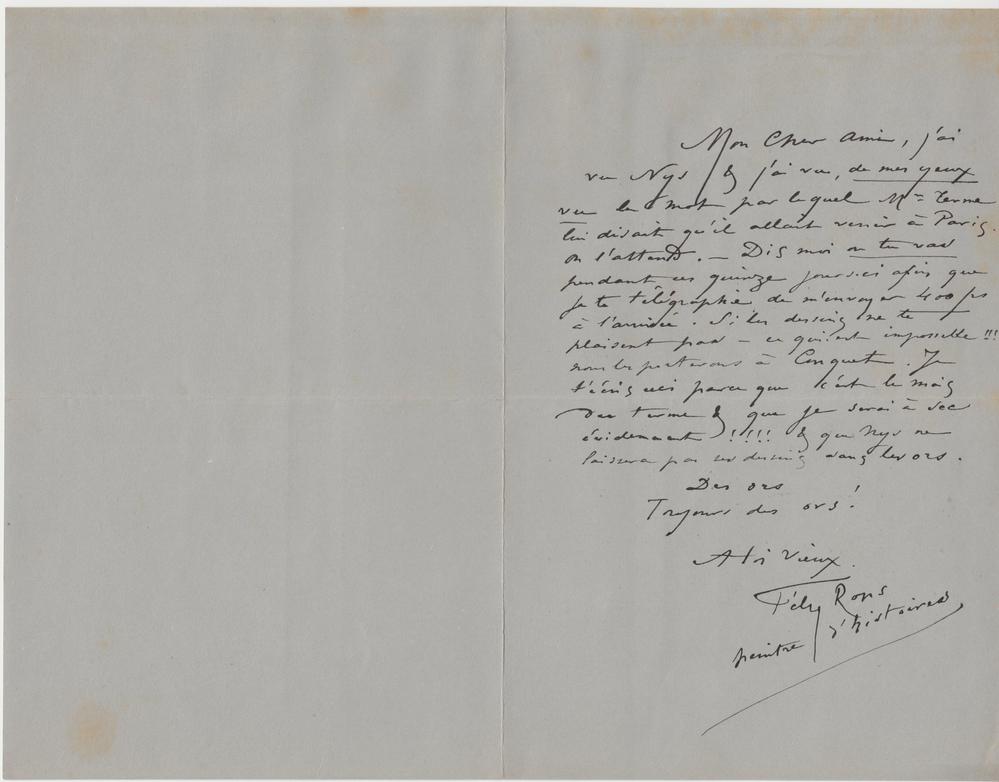 Mon Cher Ami, j'ai
vu Nys & j'ai vu, de mes yeux
vu le mot par lequel Mr Terme
lui disait qu'il allait venir à Paris.
on l'attend. – Dis moi où tu vas
pendant ces quinze jours ici afin que
je te télégraphie de m'envoyer 400 frs
à l'arrivée. Si les dessins ne te
plaisent pas – ce qui est impossible !!!
nous les porterons à Conquet. Je
t'écris ceci parce que c'est le mois
du terme & que je serai à sec
évidemment !!!! & que Nys ne
laissera pas ses dessins sans les ors.
Des ors
Toujours des ors!
A toi vieux.
Fély Rops
peintre d'histoires